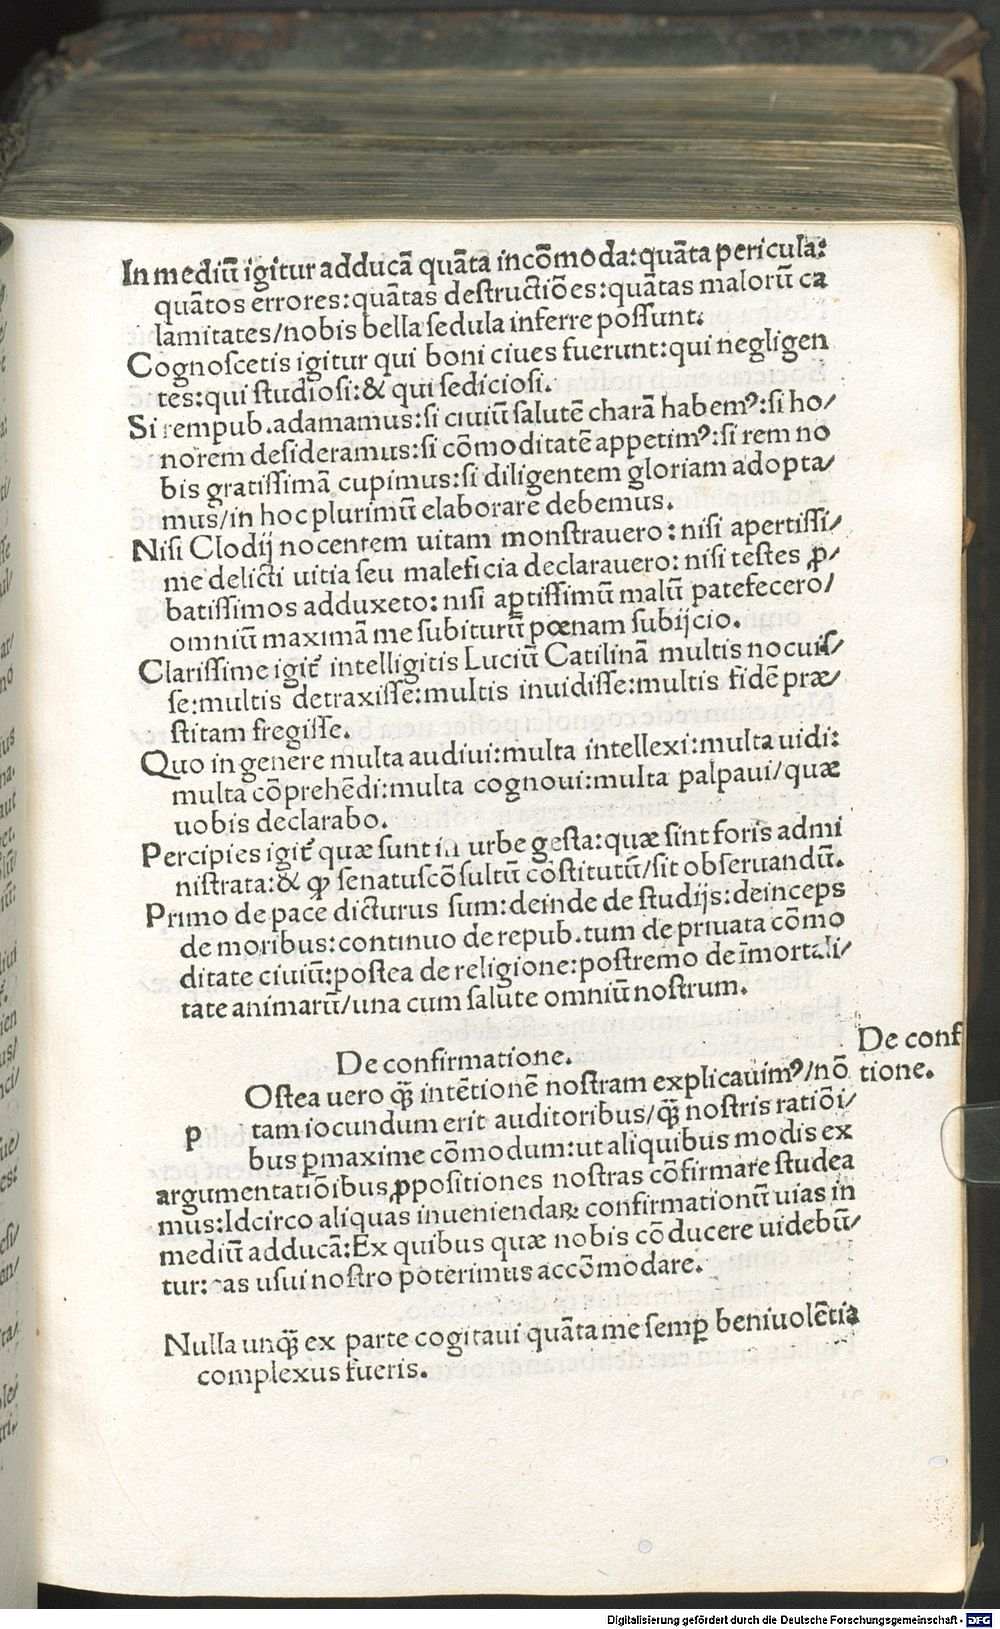 In mediū igitur adducā quāta incōmoda:quāta pericula:
quātos errores:quātas destructiōes:quātas malorū ca
lamitates/nobis bella sedula inferre possunt.
Cognoscetis igitur qui boni ciues fuerunt:qui negligen
tes:qui studiosi:& qui sediciosi.
Si rempub.adamamus:si ciuiū salutē charā habemꝰ:si ho/
norem desideramus:si cōmoditatē appetimꝰ:si rem no
bis gratissimā cupimus:si diligentem gloriam adopta/
mus/in hoc plurimū elaborare debemus.
Nisi Clodij nocentem uitam monstrauero: nisi apertissi/
me delicti uitia seu maleficia declarauero: nisi testes ꝓ/
batissimos adduxeto: nisi aꝑtissimū malū patefecero/
omniū maximā me subiturū pœnam subijcio.
Clarissime igit᷑ intelligitis Luciū Catilinā multis nocuis/
se:multis detraxisse:multis inuidisse:multis fidē præ/
stitam fregisse.
Quo in genere multa audiui:multa intellexi:multa uidi:
multa cōprehēdi:multa cognoui:multa palpaui/quæ
uobis declarabo.
Percipies igit᷑ quæ sunt in urbe gesta:quæ sint foris admi
nistrata:& ꝙ senatuscōsultū cōstitutū/sit obseruandū.
Primo de pace dicturus sum:deinde de studijs:deinceps
de moribus:continuo de repub.tum de priuata cōmo
ditate ciuiū:postea de religione:postremo de īmortali/
tate animarū/una cum salute omniū nostrum.
De confirmatione.
De conf
tione.
p
Ostea uero qꝫ̄ intētionē nostram explicauimꝰ/nō
tam iocundum erit auditoribus/qꝫ̄ nostris ratiōi/
bus ꝑmaxime cōmodum:ut aliquibus modis ex
argumentatiōibus ꝓpositiones nostras cōfirmare studea
mus:Idcirco aliquas inueniendaꝝ confirmationū uias in
mediū adducā:Ex quibus quæ nobis cō ducere uidebū/
tur: eas usui nostro poterimus accōmodare.
Nulla unqꝫ̄ ex parte cogitaui quāta me semꝑ beniuolētia
complexus fueris.
Digitalisierung gefördert durch die Deutsche Forschungsgemeinschaft - DFG